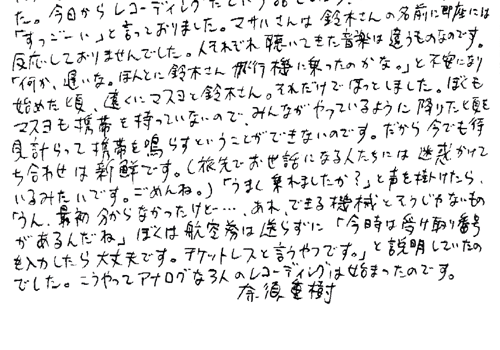 た。今日からレコーディングだという
「すっごーい」と言っておりました。マサハさんは鈴木さんの名前に即座には
反応しておりませんでした。人それぞれ聴いてきた音楽は違うものなのです。
「何か、遅いな。ほんとに鈴木さん飛行機に乗ったのかな。」と不安になり
始めた頃、遠くにマスヨと鈴木さん。それだけでほっとしました。ぼくも
マスヨも携帯を持っていないので、みんながやっているように降りた頃を
見計らって携帯を鳴らすということができないのです。だから今でも待
ち合わせは新鮮です。(旅先でお世話になる人たちには迷惑かけて
いるみたいです。ごめんね。)「うまく乗れましたか?」と声を掛けたら、
「うん、最初分からなかったけど…‥、あれ、できる機械とそうじゃないもの
があるんだね」ぼくは航空券は送らずに「今時は受け取り番号
を入力したら大丈夫です。チケットレスと言うやつです。」と説明していたの
でした。こうやってアナログな3人のレコーディングは始まったのです。
奈須重樹